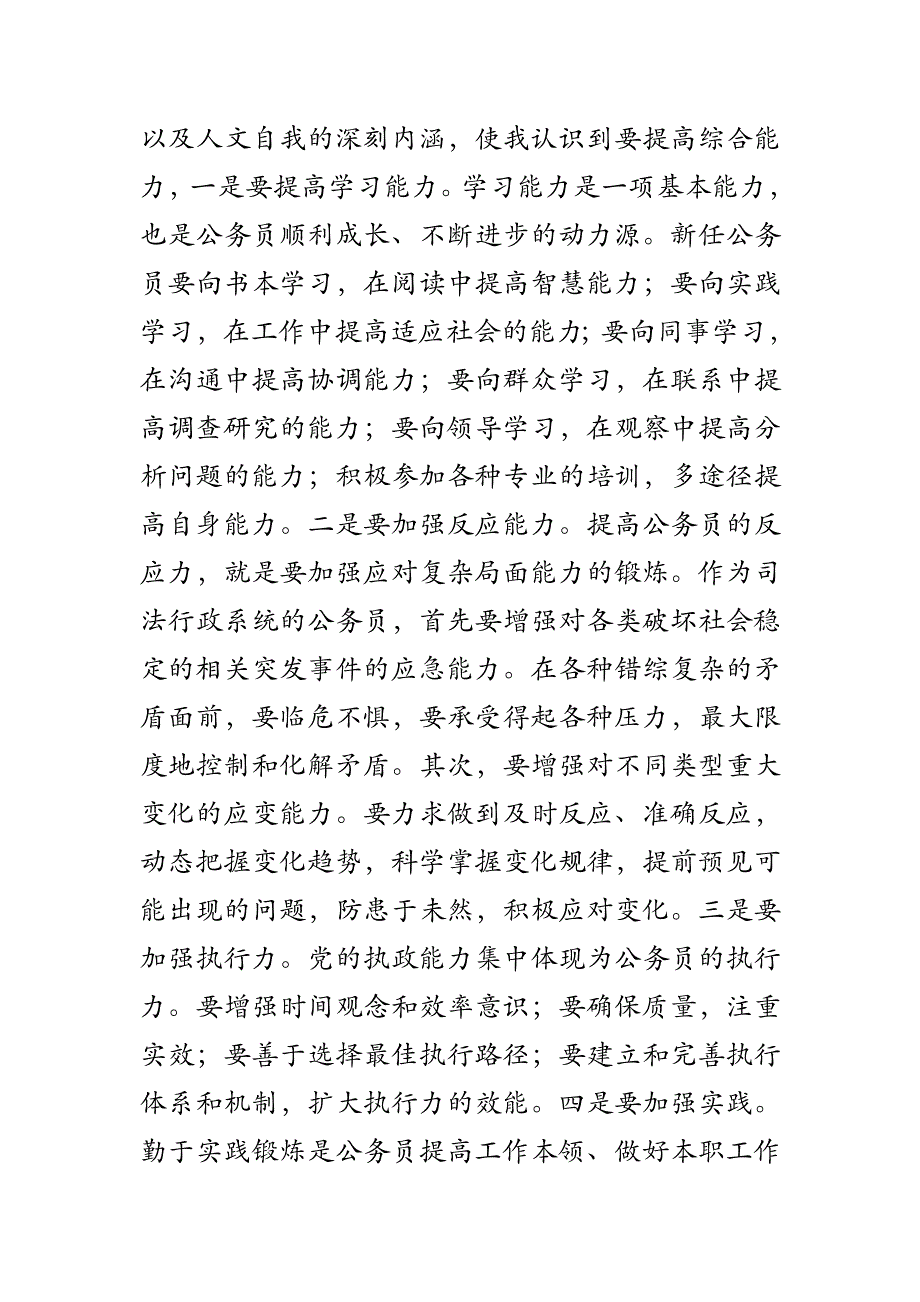 以及人文自我的深刻内涵，使我认识到要提高综合能
力，一是要提高学习能力。学习能力是一项基本能力，
也是公务员顺利成长、不断进步的动力源。新任公务
员要向书本学习，在阅读中提高智慧能力；要向实践
学习，在工作中提高适应社会的能力；要向同事学习，
在沟通中提高协调能力；要向群众学习，在联系中提
高调查研究的能力；要向领导学习，在观察中提高分
析问题的能力；积极参加各种专业的培训，多途径提
高自身能力。二是要加强反应能力。提高公务员的反
应力，就是要加强应对复杂局面能力的锻炼。作为司
法行政系统的公务员，首先要增强对各类破坏社会稳
定的相关突发事件的应急能力。在各种错综复杂的矛
盾面前，要临危不惧，要承受得起各种压力，最大限
度地控制和化解矛盾。其次，要增强对不同类型重大
变化的应变能力。要力求做到及时反应、准确反应，
动态把握变化趋势，科学掌握变化规律，提前预见可
能出现的问题，防患于未然，积极应对变化。三是要
加强执行力。党的执政能力集中体现为公务员的执行
力。要增强时间观念和效率意识；要确保质量，注重
实效；要善于选择最佳执行路径；要建立和完善执行
体系和机制，扩大执行力的效能。四是要加强实践。
勤于实践锻炼是公务员提高工作本领、做好本职工作